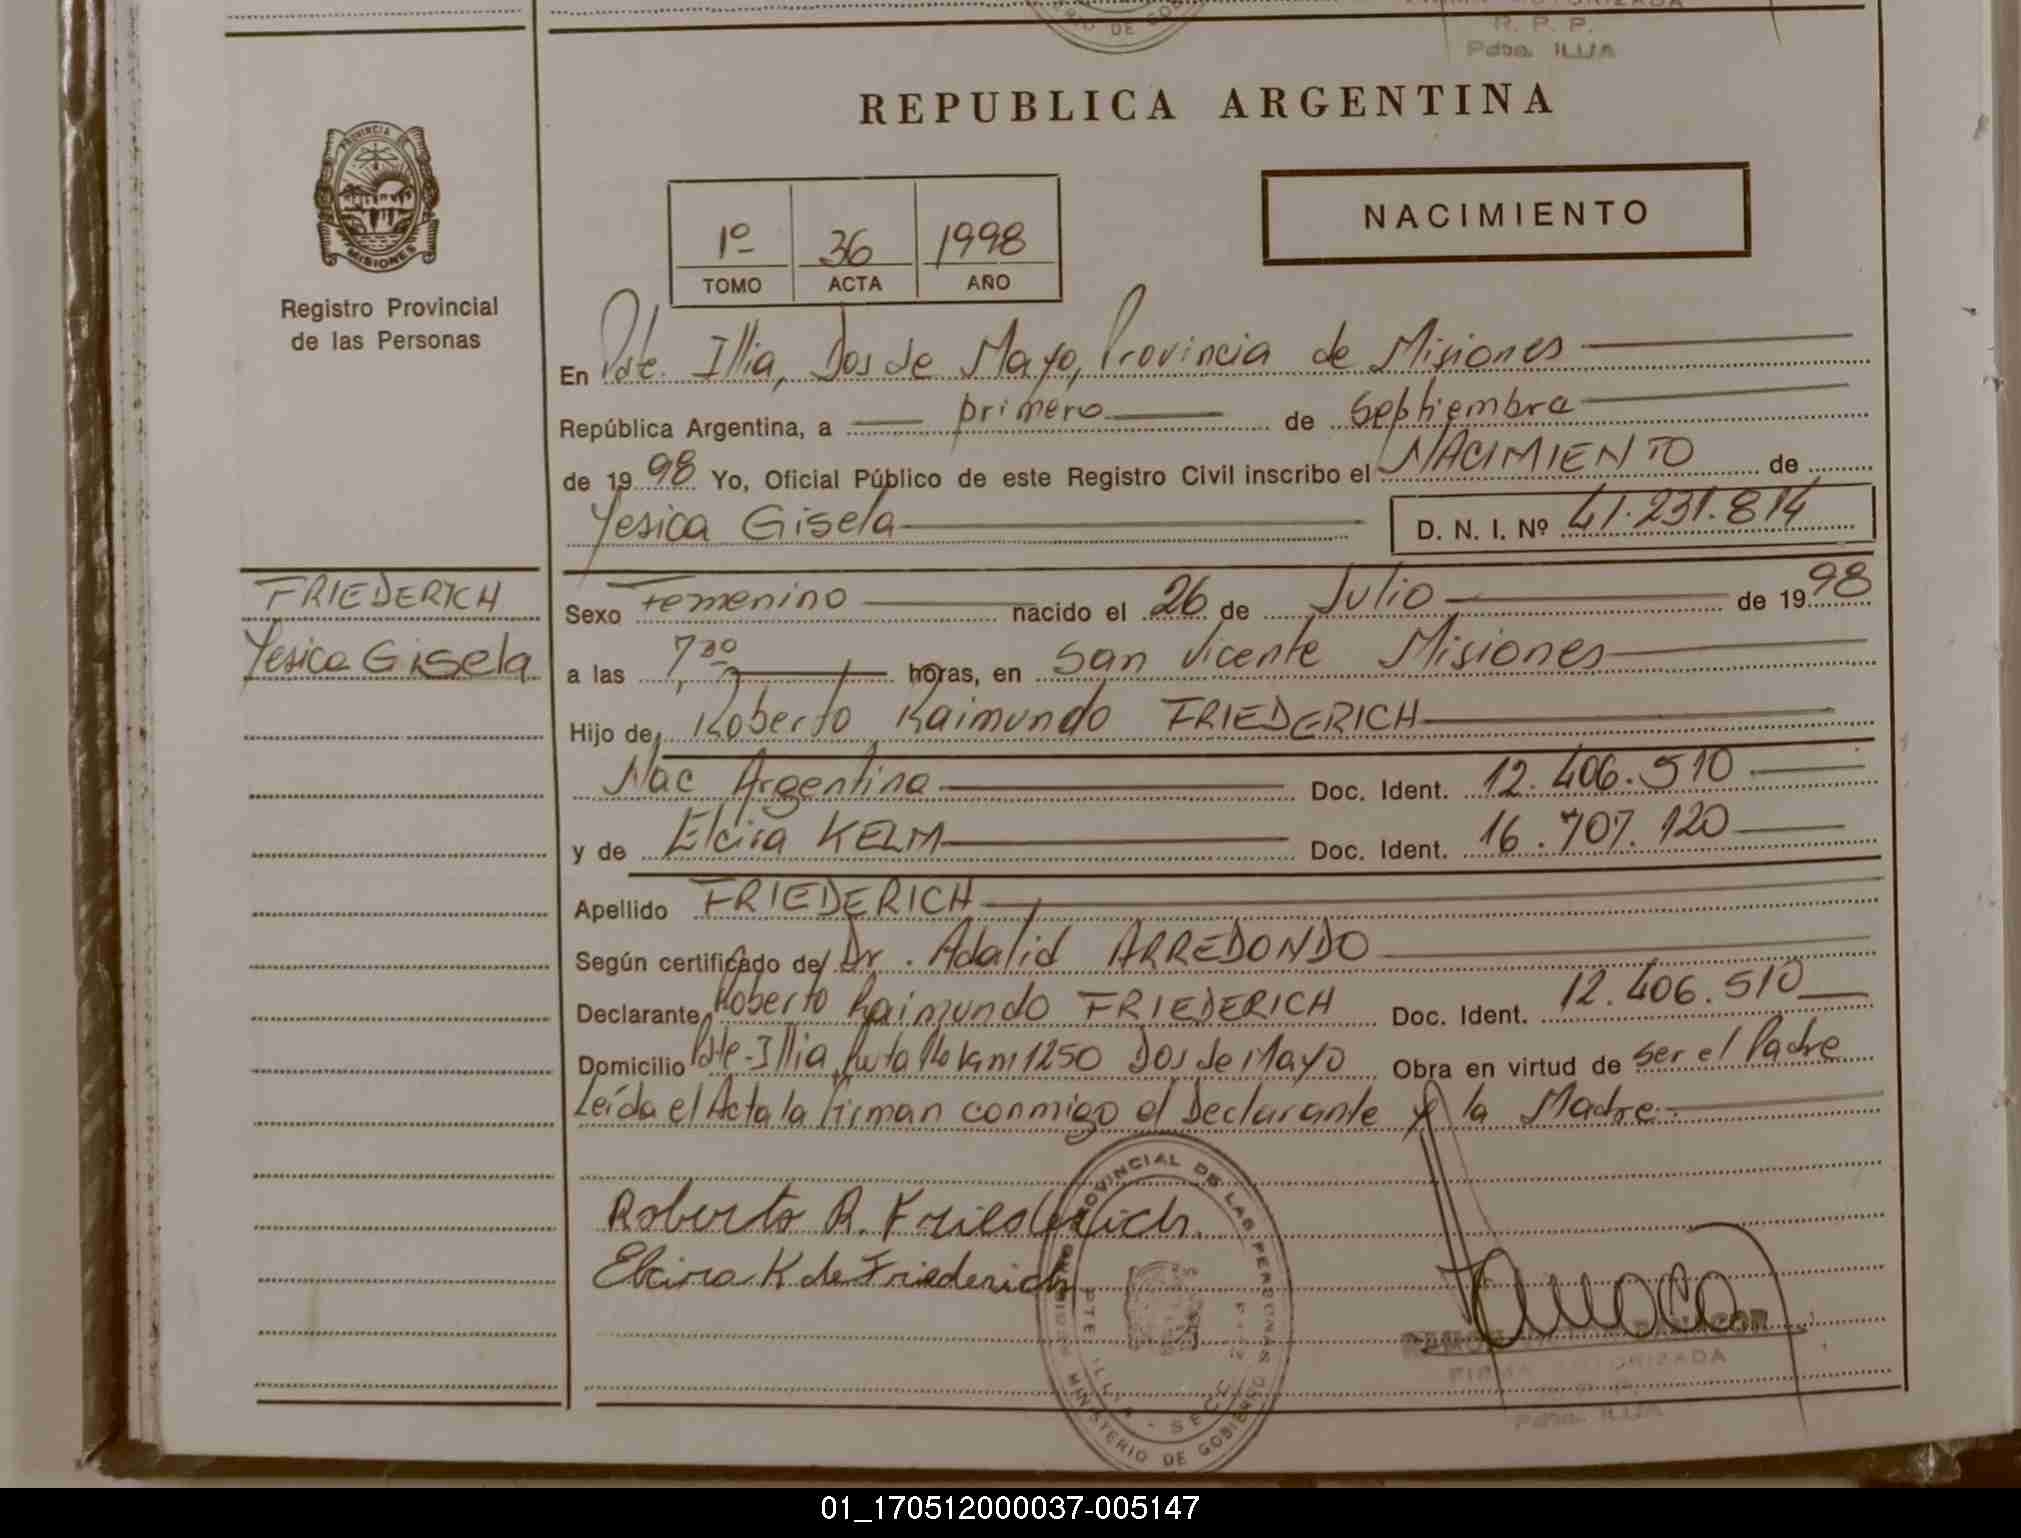 R. P. P.
Pdte. ILLIA
REPUBLICA ARGENTINA
PROVINCIA DE
MISIONES
Registro Provincial
de las Personas
1º 36 1998
TOMO ACTA AÑO
NACIMIENTO
En Pdte. Illia, Dos de Mayo, Provincia de Misiones
República Argentina, a primero de Septiembre
de 1998 Yo, Oficial Público de este Registro Civil inscribo el NACIMIENTO de
Yesica Gisela D. N. I. Nº 41.231.814
FRIEDERICH
Yesica Gisela
Sexo Femenino nacido el 26 de Julio de 1998
a las 7,30 horas, en San Vicente Misiones
Hijo de Roberto Raimundo FRIEDERICH
Nac Argentina Doc. Ident. 12.406.510
y de Elcira KELM Doc. Ident. 16.707.120
Apellido FRIEDERICH
Según certificado de Dr. Adalid ARREDONDO
Declarante Roberto Raimundo FRIEDERICH Doc. Ident. 12.406.510
Domicilio Pdte-Illia Ruta 14 km 1250 Dos de Mayo Obra en virtud de ser el Padre
Leída el Acta la firman conmigo el Declarante y la Madre.-
Roberto R. Friederich.
Elcira K de Friederich
PROVINCIAL DE LAS PERSONAS
MINISTERIO DE GOBIERNO
PTE ILLIA
FIRMA AUTORIZADA
Pdte. ILLIA
01_170512000037-005147